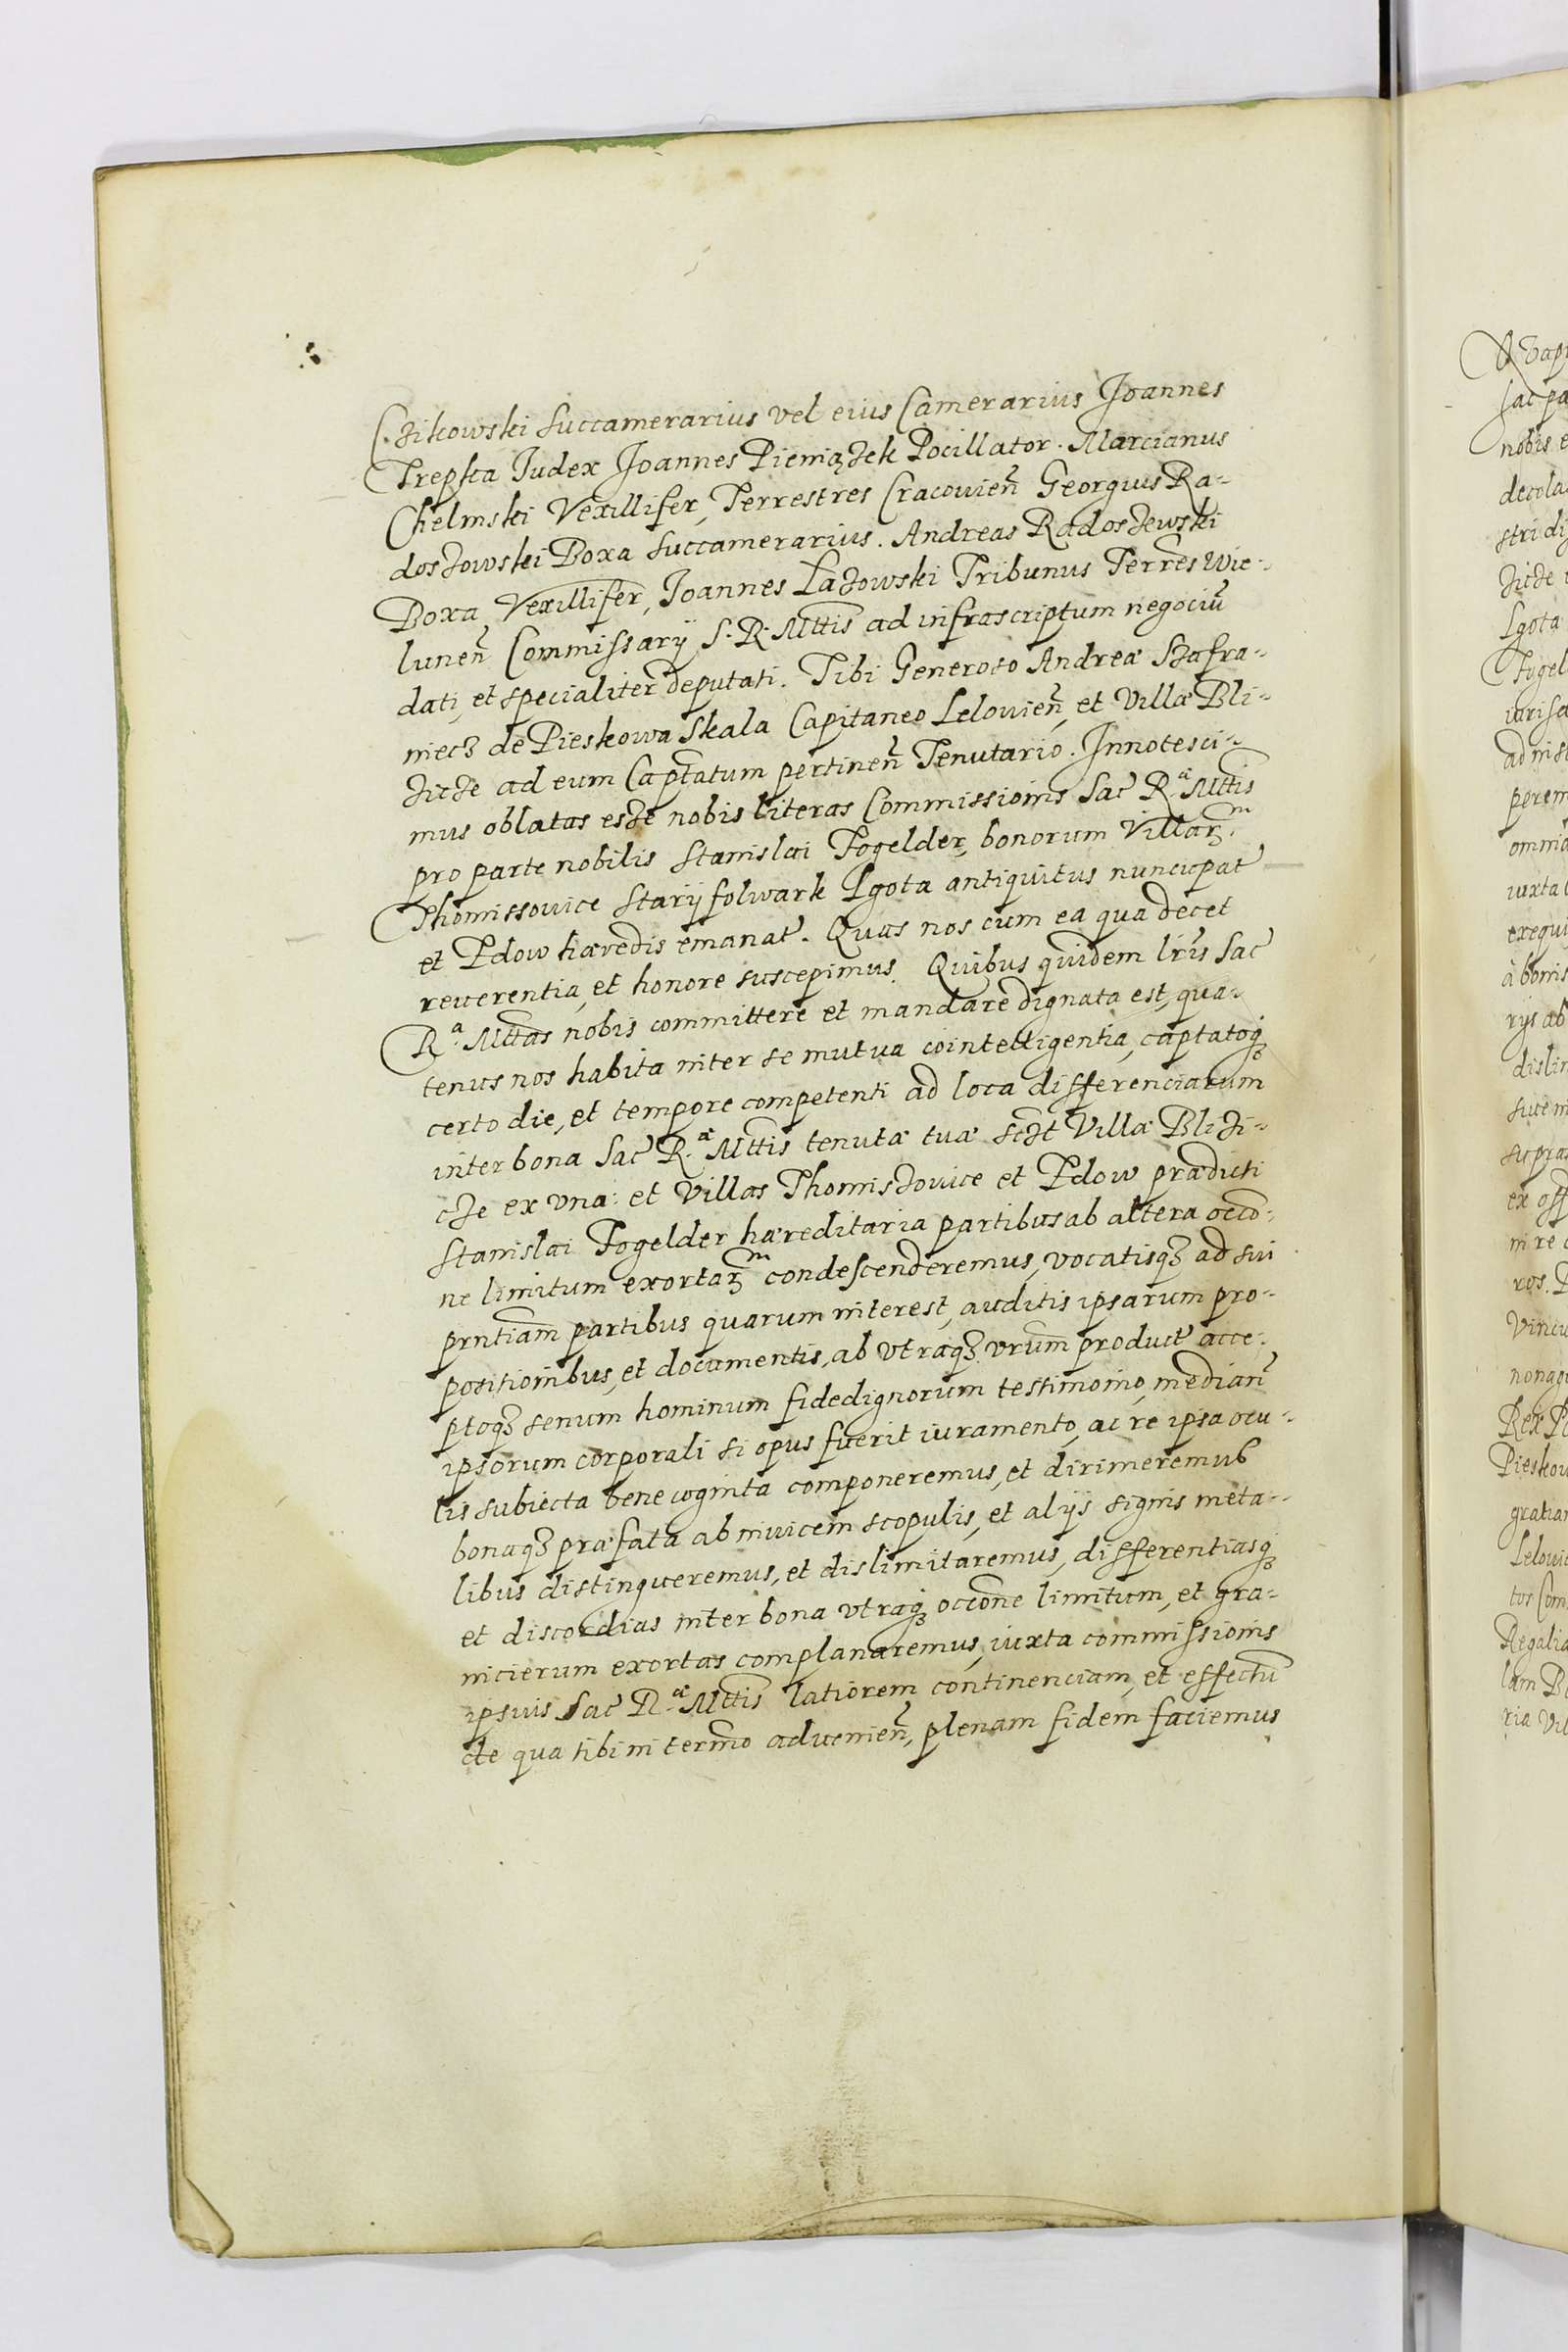 Czikowski Succamerarius vel eius Camerarius Joannes
Trepka Judex Joannes Pieniązek Pocillator. Marcianus
Chelmski Vexillifer, Terrestres Cracouien̄ Georgius Ra-
doszowski Boxa Succamerarius. Andreas Radoszewski
Boxa Vexillifer, Joannes Łazowski Tribunus Terres̄ Wie-
lunen̄ Commissarij S. R. Mttis ad infrascriptum negociū
dati, et specialiter deputati. Tibi Generoso Andreæ Szafra-
niecz de Pieskowa Skala Capitaneo Lelouien̄, et Villæ Bli-
zicze ad eum Captatum pertinen̄ Tenutario. Innotesci-
mus oblatas esze nobis literas Commissionis Sac̄ R.æ Mttis
pro parte nobilis Stanislai Fogelder, bonorum Villarꝫm
Thomissouice Starij folwark Lgota antiquitus nuncupat̄
et Zdow hæredis emanat̄. Quas nos cum ea qua decet
reuerentia, et honore suscepimus. Quibus quidem lr̄is Sac̄
R.a Mttas nobis committere et mandare dignata est, qua-
tenus nos habita inter se mutua cointelligentia, captatoqꝫ
certo die, et tempore competenti ad loca differenciarum
inter bona Sac̄ R.æ Mttis tenutæ tuæ sczt Villæ Blizi-
cze ex vna: et Villas Thomiszouice et Zdow prædicti
Stanislai Fogelder hæreditaria partibus ab altera occō-
ne limitum exortarꝫm condescenderemus, vocatisqꝫ ad sui
prntiam partibus quarum interest, auditis ipsarum pro-
positionibus, et documentis, ab vtraqꝫ vrum product̄ acce-
ptoqꝫ senum hominum fidedignorum testimonio, median̄
ipsorum corporali si opus fuerit iuramento, ac re ipsa ocu-
lis subiecta bene cognita componeremus, et dirimeremus
bonaqꝫ præfata ab inuicem scopulis, et alijs signis meta-
libus distingueremus, et dislimitaremus, differentiasqꝫ
et discordias inter bona vtraqꝫ occōne limitum, et gra-
nicierum exortas complanaremus, iuxta commissionis
ipsius Sac̄ R.æ Mttis latiorem continenciam, et effectū
de qua tibi in termo aduenien̄, plenam fidem faciemus